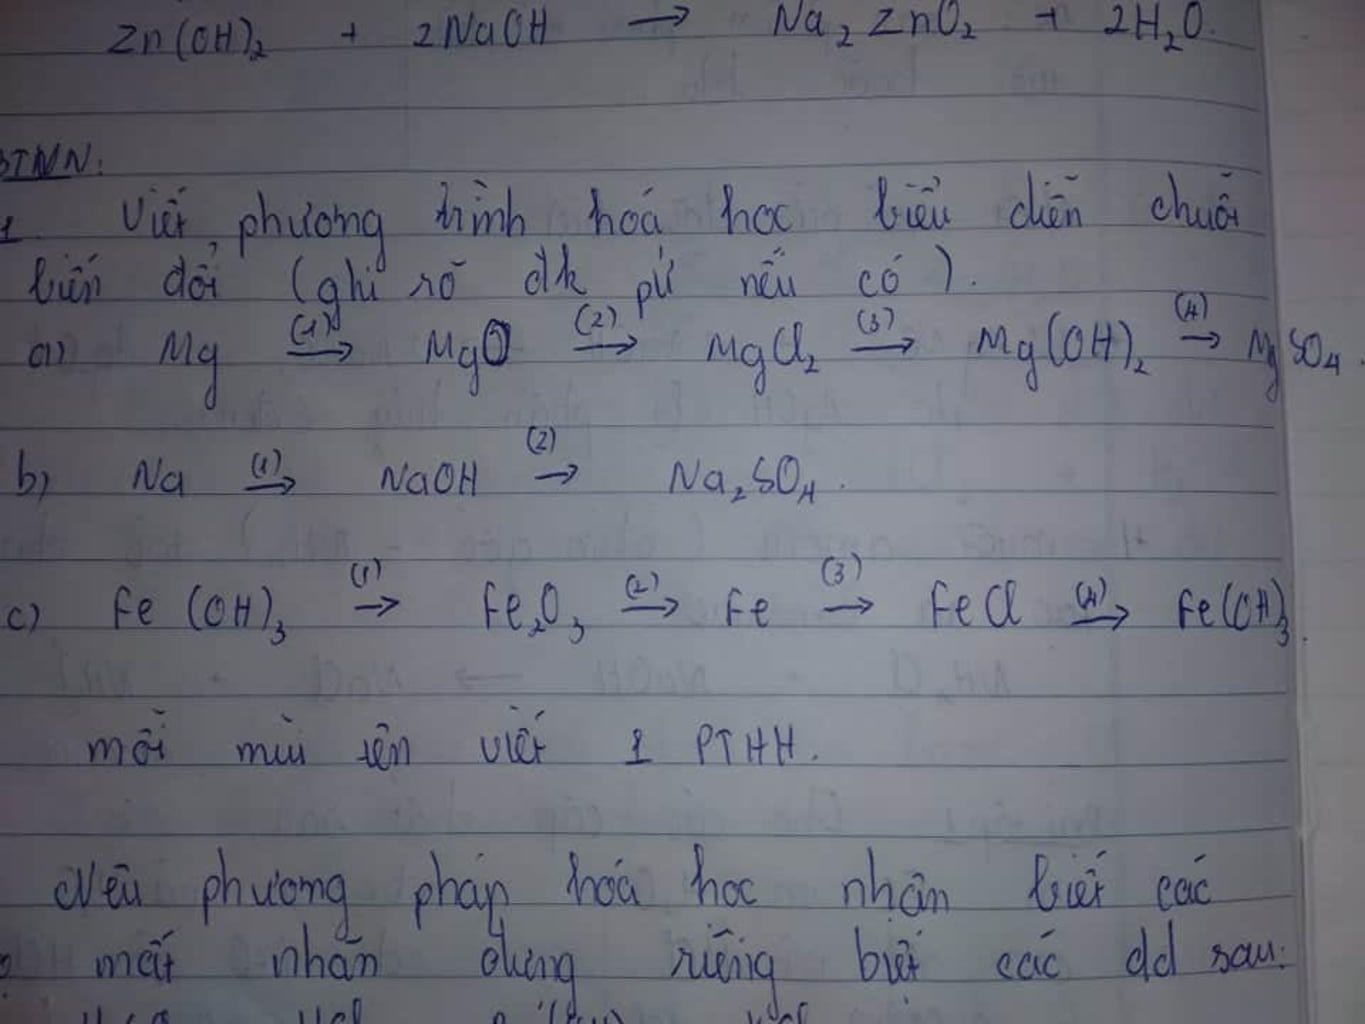 Zn(OH)₂ + 2NaOH → Na₂ZnO₂ + 2H₂O.
BTMN:
1. Viết phương trình hoá học biểu diễn chuỗi
biến đổi (ghi rõ đk pứ nếu có).
a) Mg (1)→ MgO (2)→ MgCl₂ (3)→ Mg(OH)₂ (4)→ MgSO₄.
b) Na (1)→ NaOH (2)→ Na₂SO₄.
c) Fe(OH)₃ (1)→ Fe₂O₃ (2)→ Fe (3)→ FeCl (4)→ Fe(OH)₃.
mỗi mũi tên viết 1 PTHH.
Nêu phương pháp hoá học nhận biết các
mất nhãn đựng riêng biệt các dd sau: